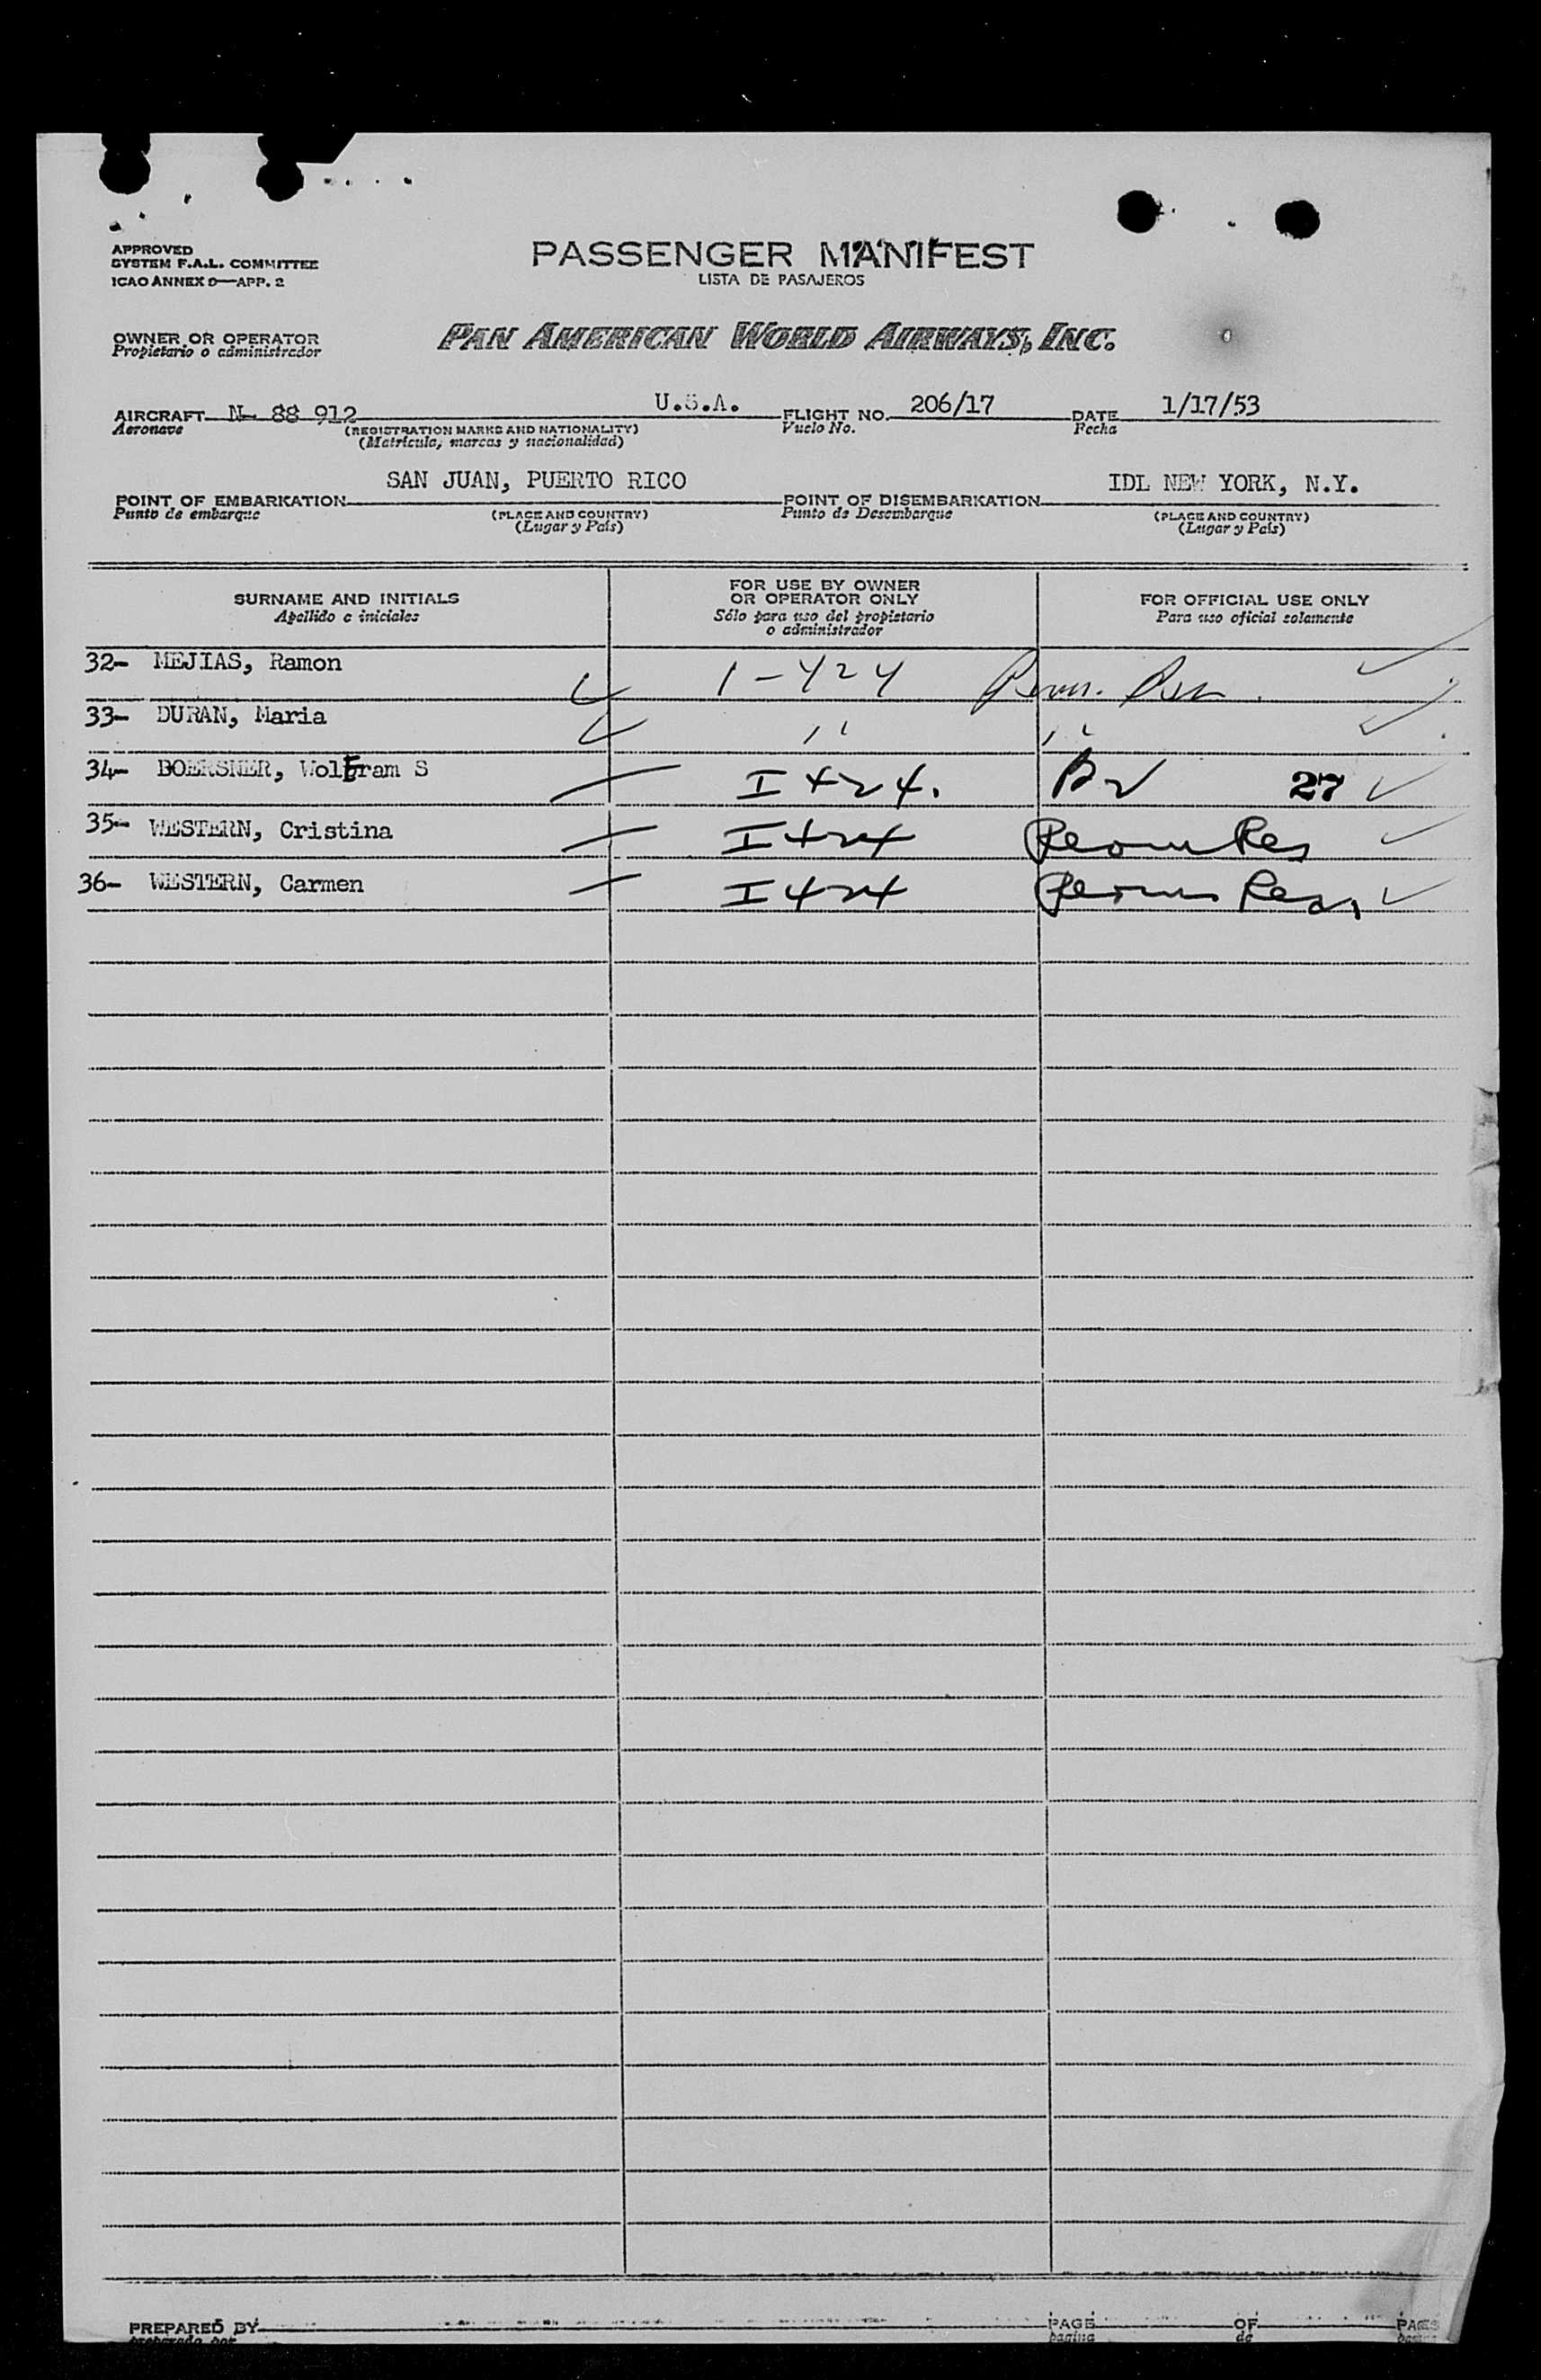 APPROVED
SYSTEM F.A.L. COMMITTEE
ICAO ANNEX 9—APP. 2
PASSENGER MANIFEST
LISTA DE PASAJEROS
OWNER OR OPERATOR
Propietario o administrador
PAN AMERICAN WORLD AIRWAYS, INC.
AIRCRAFT N- 88 912 U.S.A. FLIGHT NO. 206/17 DATE 1/17/53
Aeronave (REGISTRATION MARKS AND NATIONALITY) Vuelo No. Fecha
(Matrícula, marcas y nacionalidad)
POINT OF EMBARKATION SAN JUAN, PUERTO RICO POINT OF DISEMBARKATION IDL NEW YORK, N.Y.
Punto de embarque (PLACE AND COUNTRY) Punto de Desembarque (PLACE AND COUNTRY)
(Lugar y País) (Lugar y País)
SURNAME AND INITIALS FOR USE BY OWNER OR OPERATOR ONLY FOR OFFICIAL USE ONLY
Apellido e iniciales Sólo para uso del propietario o administrador Para uso oficial solamente
32- MEJIAS, Ramon 1-424
33- DURAN, Maria "
34- BOERSNER, Wolfram S I 424. 27
35- WESTERN, Cristina I 424 Perm Res
36- WESTERN, Carmen I 424 Perm Res.
PREPARED BY PAGE OF PAGES
preparado por pagina de